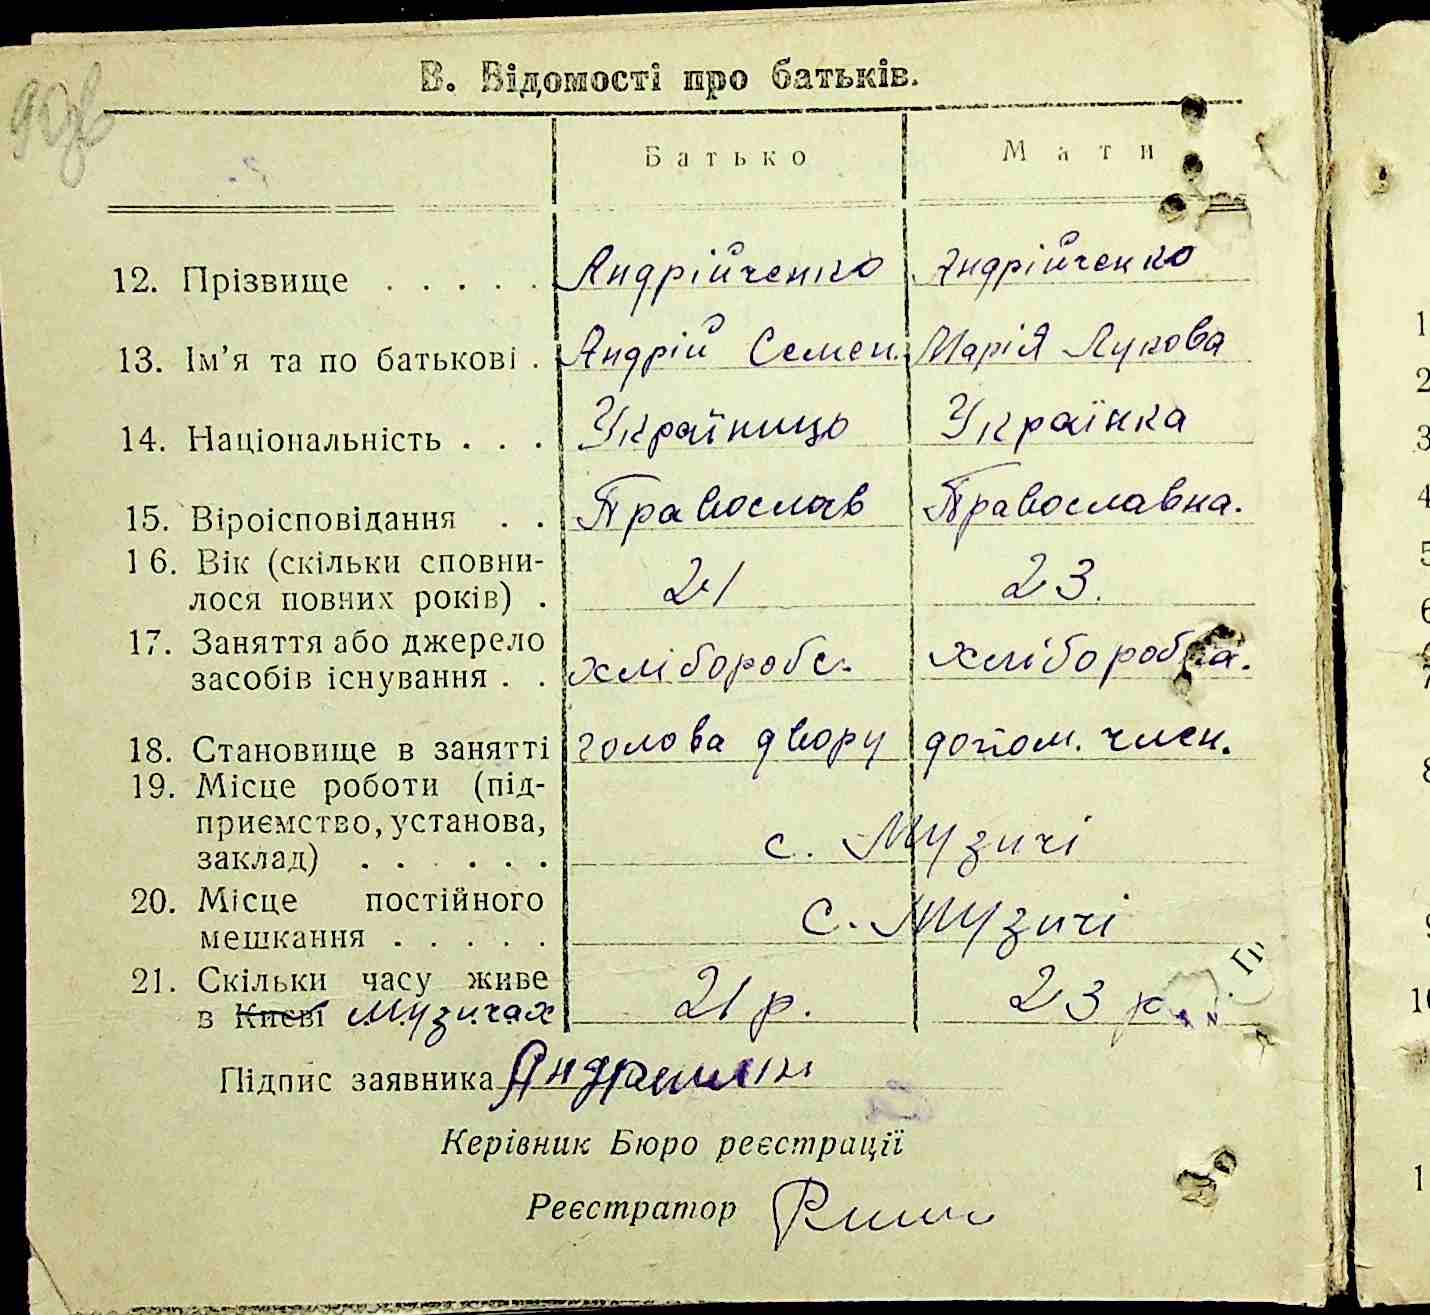 90зв
В. Відомості про батьків.
Батько Мати
12. Прізвище . . . . . Андрійченко Андрійченко
13. Ім’я та по батькові . Андрій Семен. Марія Лукова
14. Національність . . . Українець Українка
15. Віроісповідання . . Православ Православна.
16. Вік (скільки сповни-
лося повних років) . 21 23.
17. Заняття або джерело
засобів існування . . хлібороб хліборобка.
18. Становище в занятті голова двору допом. член.
19. Місце роботи (під-
приємство, установа,
заклад) . . . . . . с. Музичі
20. Місце постійного
мешкання . . . . . с. Музичі
21. Скільки часу живе
в Києві Музичах 21 р. 23 р.
Підпис заявника
Керівник Бюро реєстрації
Реєстратор